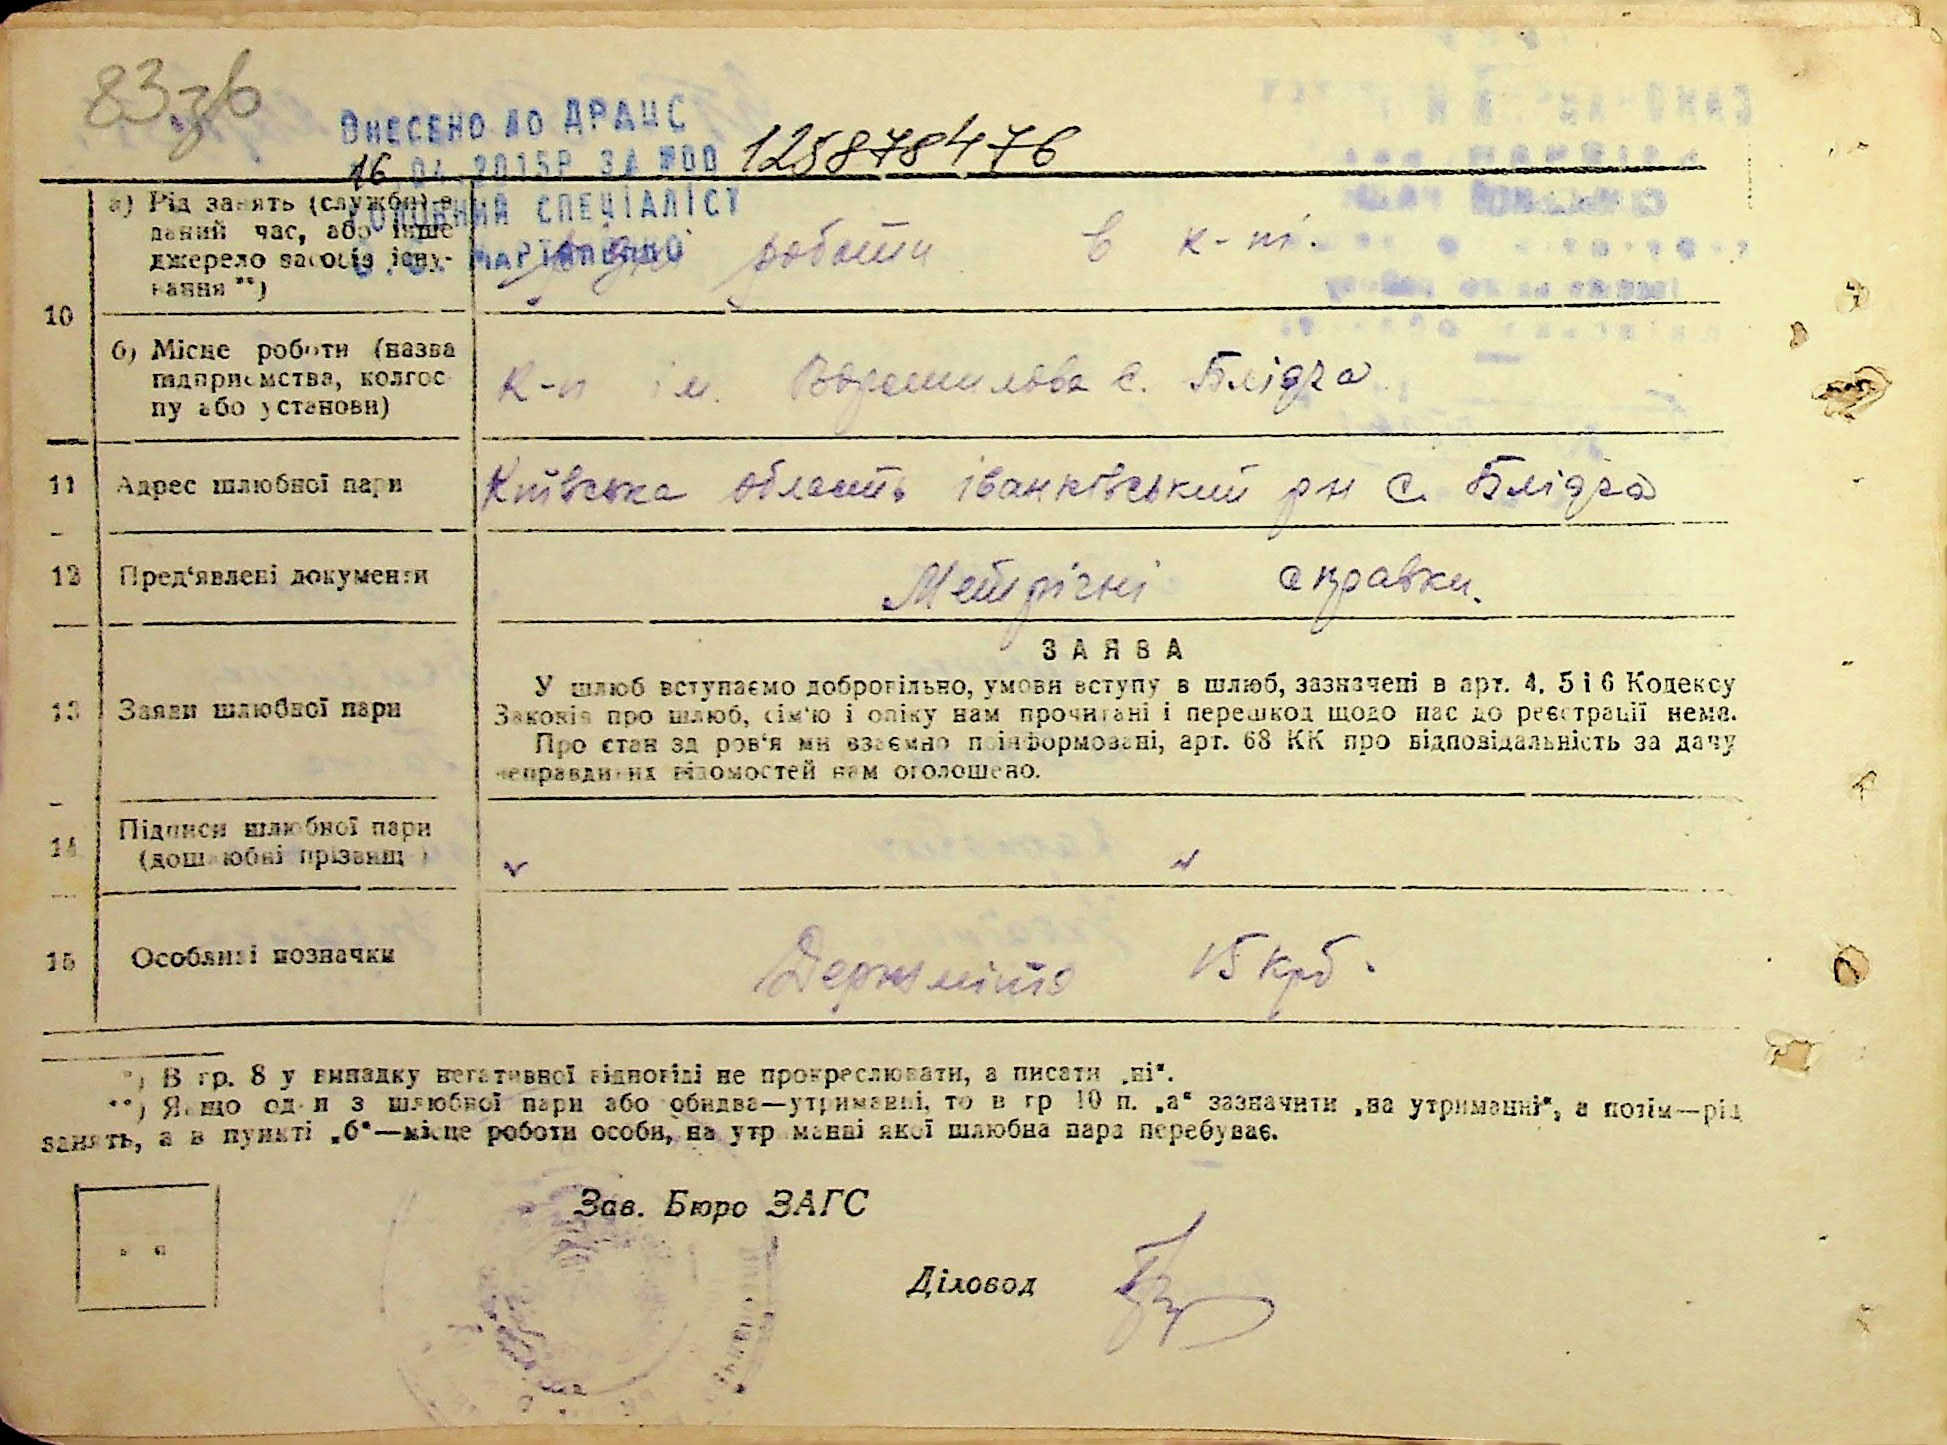 83 зв
ВНЕСЕНО ДО ДРАЦС
16 04.2015Р ЗА №00 125878476
ГОЛОВНИЙ СПЕЦІАЛІСТ
МАРТИНЕНКО
10
а) Рід занять (служби) в
даний час, або інше
джерело засобів існу-
вання **)
роботи в к-пі.
б) Місце роботи (назва
підприємства, колгос-
пу або установи)
к-п ім. Ворошилова с. Блідча
11 Адрес шлюбної пари Київська область іванківський рн с. Блідча
12 Пред'явлені документи Метричні справки.
ЗАЯВА
13 Заяви шлюбної пари
У шлюб вступаємо добровільно, умови вступу в шлюб, зазначені в арт. 4, 5 і 6 Кодексу
Законів про шлюб, сім'ю і опіку нам прочитані і перешкод щодо нас до реєстрації нема.
Про стан здоров'я ми взаємно поінформовані, арт. 68 КК про відповідальність за дачу
неправдивих відомостей нам оголошено.
14 Підписи шлюбної пари
(дошлюбні прізвищ )
15 Особливі позначки Держмито 15 крб.
*) В гр. 8 у випадку негативної відповіді не прокреслювати, а писати „ні“.
**) Якщо один з шлюбної пари або обидва—утриманні, то в гр 10 п. „а“ зазначити „на утриманні“, а потім—рід
занять, а в пункті „б“—місце роботи особи, на утриманні якої шлюбна пара перебуває.
Зав. Бюро ЗАГС
Діловод